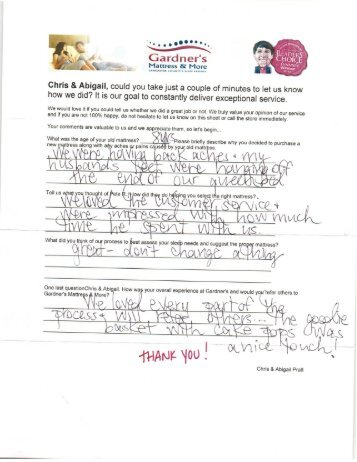 Gardner's
Mattress & More
LANCASTER COUNTY'S SLEEP EXPERT
READERS
CHOICE
Chris & Abigail, could you take just a couple of minutes to let us know
how we did? It is our goal to constantly deliver exceptional service.
We would love it if you could tell us whether we did a great job or not. We truly value your opinion of our service
and if you are not 100% happy, do not hesitate to let us know on this sheet or call the store immediately.
Your comments are valuable to us and we appreciate them, so let's begin...
What was the age of your old mattress? 5yrs Please briefly describe why you decided to purchase a
new mattress along with any aches or pains caused by your old mattress.
We were having back aches + my
husbands feet were hanging off
the end of our queen bed
Tell us what you thought of Pete B. How did they do helping you select the right mattress?
We loved the customer service +
were impressed with how much
time he spent with us.
What did you think of our process to best assess your sleep needs and suggest the proper mattress?
great - don't change a thing
One last question Chris & Abigail. How was your overall experience at Gardner's and would you refer others to
Gardner's Mattress & More?
We loved every part of the
process + will refer others... The goodie
basket with cake pops was
a nice touch!
THANK YOU!
Chris & Abigail Pratt